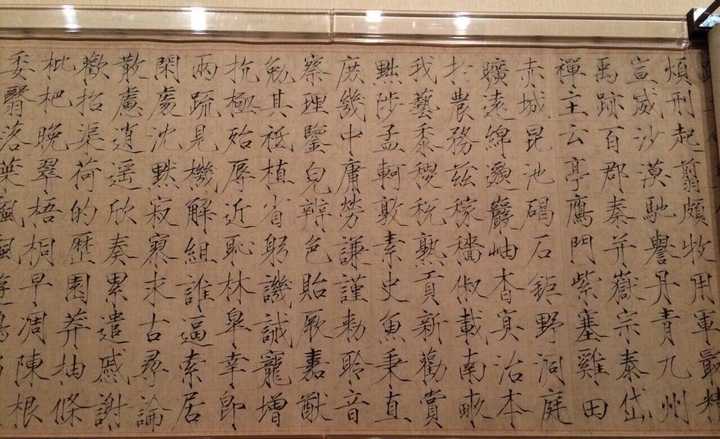 煩刑起翦頗牧用軍最精
宣威沙漠馳譽丹青九州
禹跡百郡秦并嶽宗泰岱
禪主云亭鴈門紫塞雞田
赤城昆池碣石鉅野洞庭
曠遠綿邈巖岫杳冥治本
於農務茲稼穡俶載南畝
我藝黍稷稅熟貢新勸賞
黜陟孟軻敦素史魚秉直
庶幾中庸勞謙謹勑聆音
察理鑒皃辨色貽厥嘉猷
勉其祗植省躬譏誡寵增
抗極殆辱近恥林皋幸即
兩疏見機解組誰逼索居
閑處沈默寂寥求古尋論
散慮逍遙欣奏累遣慼謝
歡招渠荷的歷園莽抽條
枇杷晚翠梧桐早凋陳根
委翳落葉飄颻